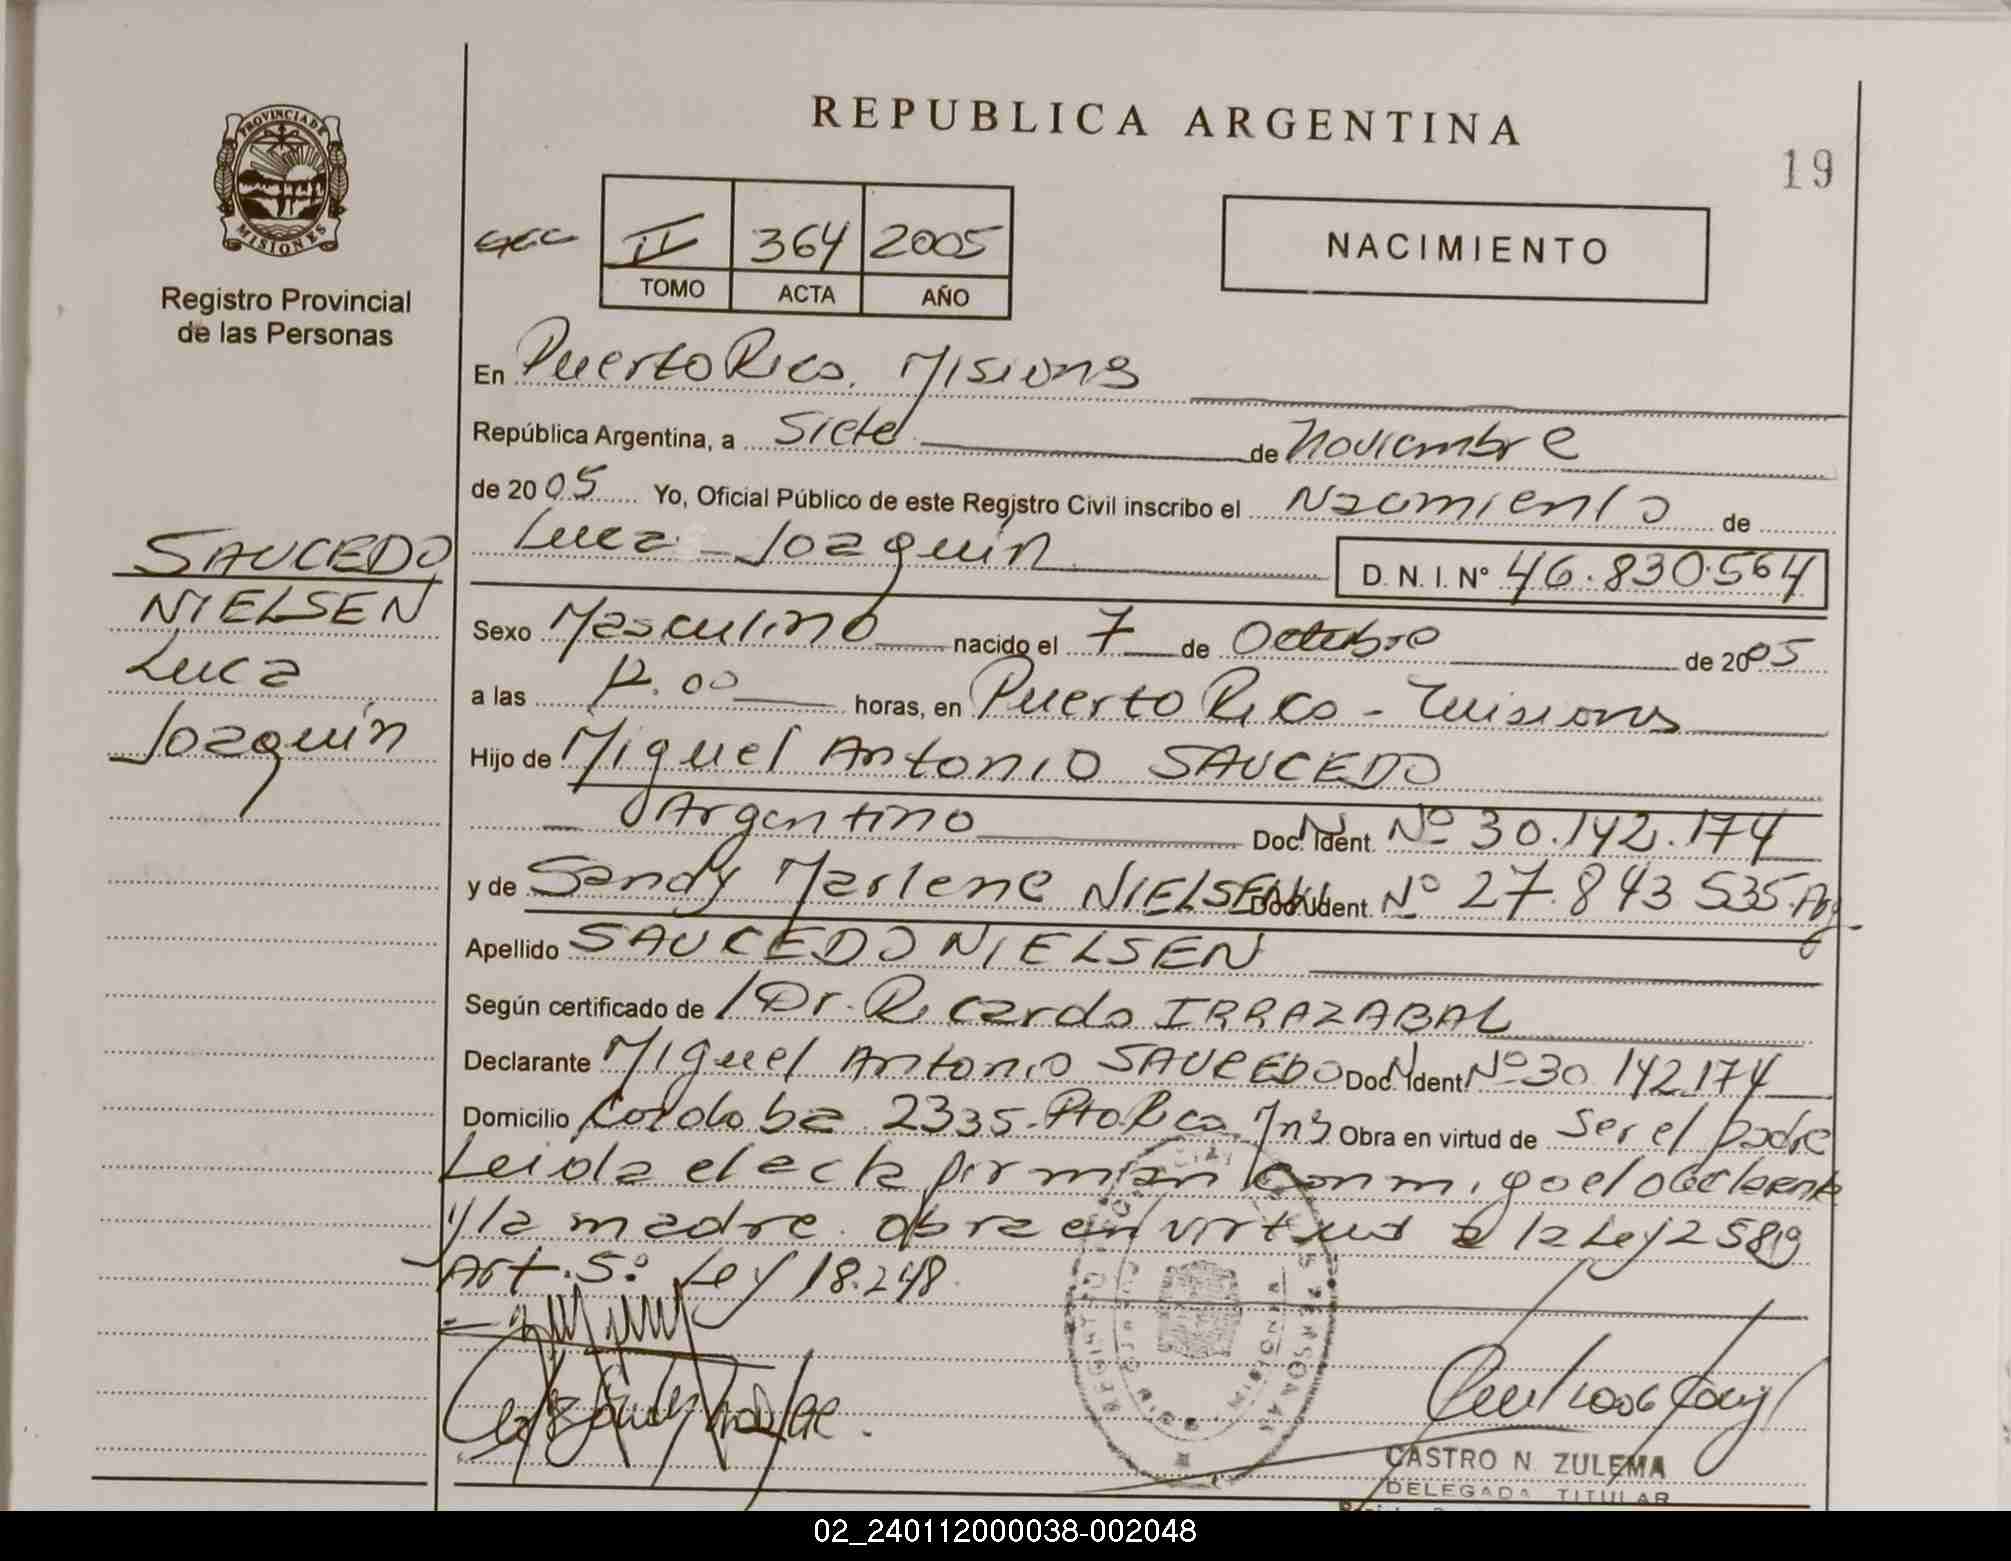 REPUBLICA ARGENTINA
19
PROVINCIA DE
MISIONES
Registro Provincial
de las Personas
II 364 2005
TOMO ACTA AÑO
NACIMIENTO
En Puerto Rico. Misiones
República Argentina, a Siete de Noviembre
de 2005 Yo, Oficial Público de este Registro Civil inscribo el Nacimiento de
Luca Joaquín
D. N. I. Nº 46.830.564
SAUCEDO
NIELSEN
Luca
Joaquín
Sexo Masculino nacido el 7 de Octubre de 2005
a las 12.00 horas, en Puerto Rico - Misiones
Hijo de Miguel Antonio SAUCEDO
Argentino Doc. Ident. Nº 30.142.174
y de Sandy Marlene NIELSEN Doc. Ident. Nº 27.843 535. Arg.
Apellido SAUCEDO NIELSEN
Según certificado de Dr. Ricardo IRRAZABAL
Declarante Miguel Antonio SAUCEDO Doc. Ident Nº 30 142 174
Domicilio Cordoba 2335. Pto Rico Mns Obra en virtud de ser el padre
Leida el acta firman conmigo el declarante
y la madre. obra en virtud a la Ley 2589
Art. 5º Ley 18.248
CASTRO N. ZULEMA
DELEGADA TITULAR
02_240112000038-002048